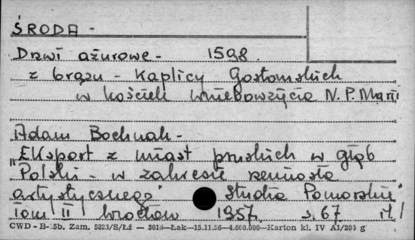 ŚRODA -
Drzwi ażurowe - 1598.
z brązu - Kaplicy Gostomskich
w kościele Wniebowzięcia N.P. Marii
Adam Bochnak -
"Eksport z miast pruskich w głąb
Polski - w zakresie rzemiosła
artystycznego" Studia Pomorskie"
Tom II Wrocław 1957. s. 67 il!
CWD - B-25b, Zam. 5821/S/Łź - Łak-15.11.56-4.000.000-Karton kl. IV A1/200 g